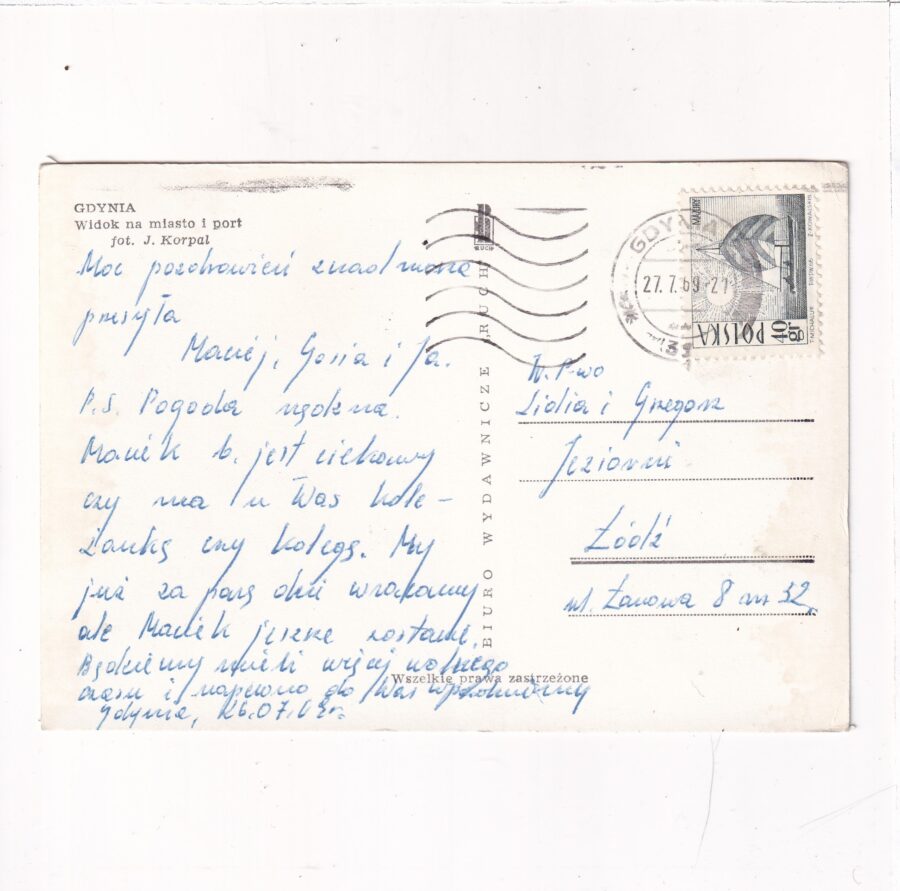 GDYNIA
Widok na miasto i port
fot. J. Korpal
Moc pozdrowień znad morza
przesyła
Maciej, Gosia i Ja.
P.S. Pogoda nędzna.
Maciek b. jest ciekawy
czy ma u Was kole-
żankę czy kolegę. My
już za parę dni wracamy
ale Maciek jeszcze zostanie.
Będziemy mieli więcej wolnego
czasu i napewno do Was wpadniemy
Gdynia, 26.07.69r.
BIURO WYDAWNICZE RUCH
RUCH
Wszelkie prawa zastrzeżone
GDYNIA
27.7.69-21
3
MAZURY
POLSKA
40 gr
W. P-wo
Lidia i Grzegorz
Jeziorni
Łódź
ul. Żanowa 8 m 32